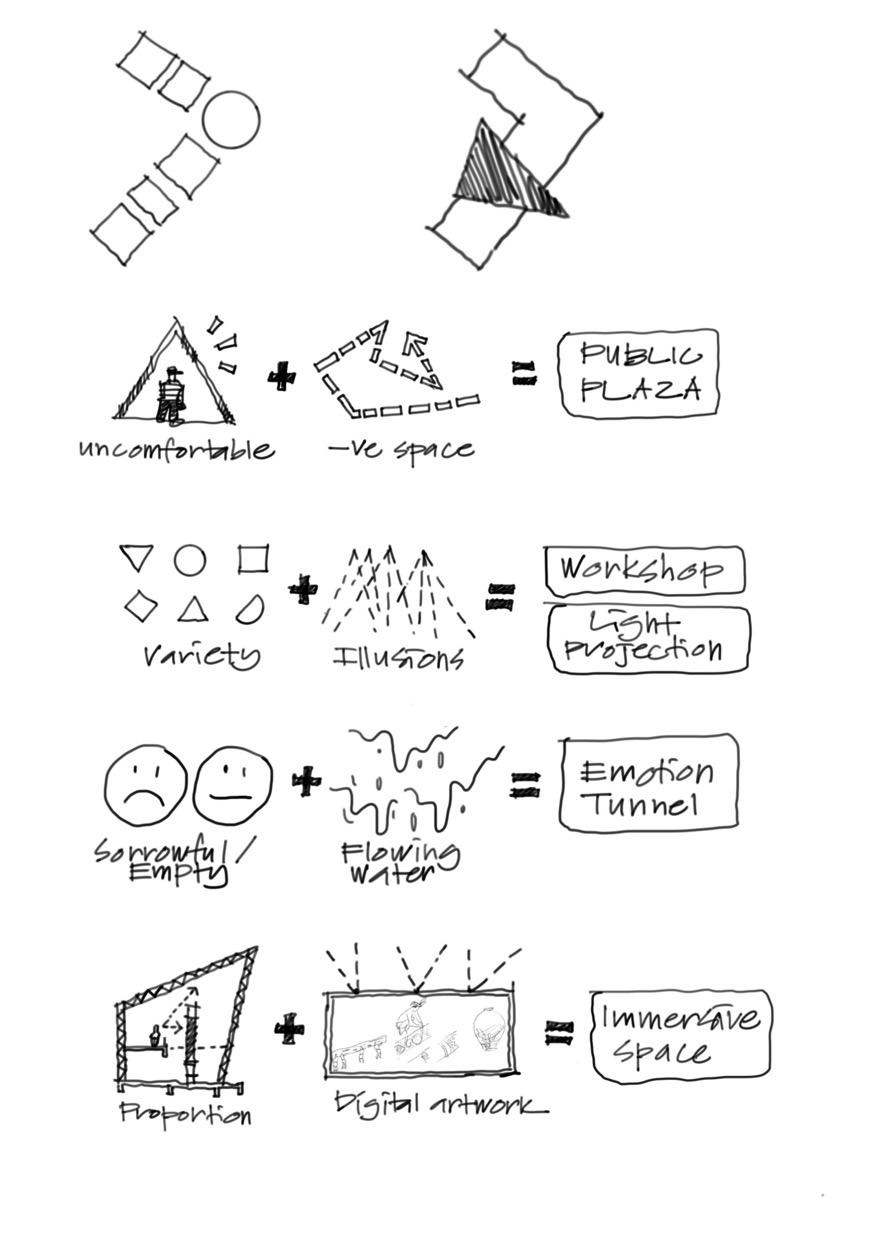 uncomfortable
+
-ve space
=
PUBLIC
PLAZA
variety
+
Illusions
=
Workshop
Light
projection
Sorrowful /
Empty
+
Flowing
water
=
Emotion
Tunnel
Proportion
+
Digital artwork
=
Immersive
space